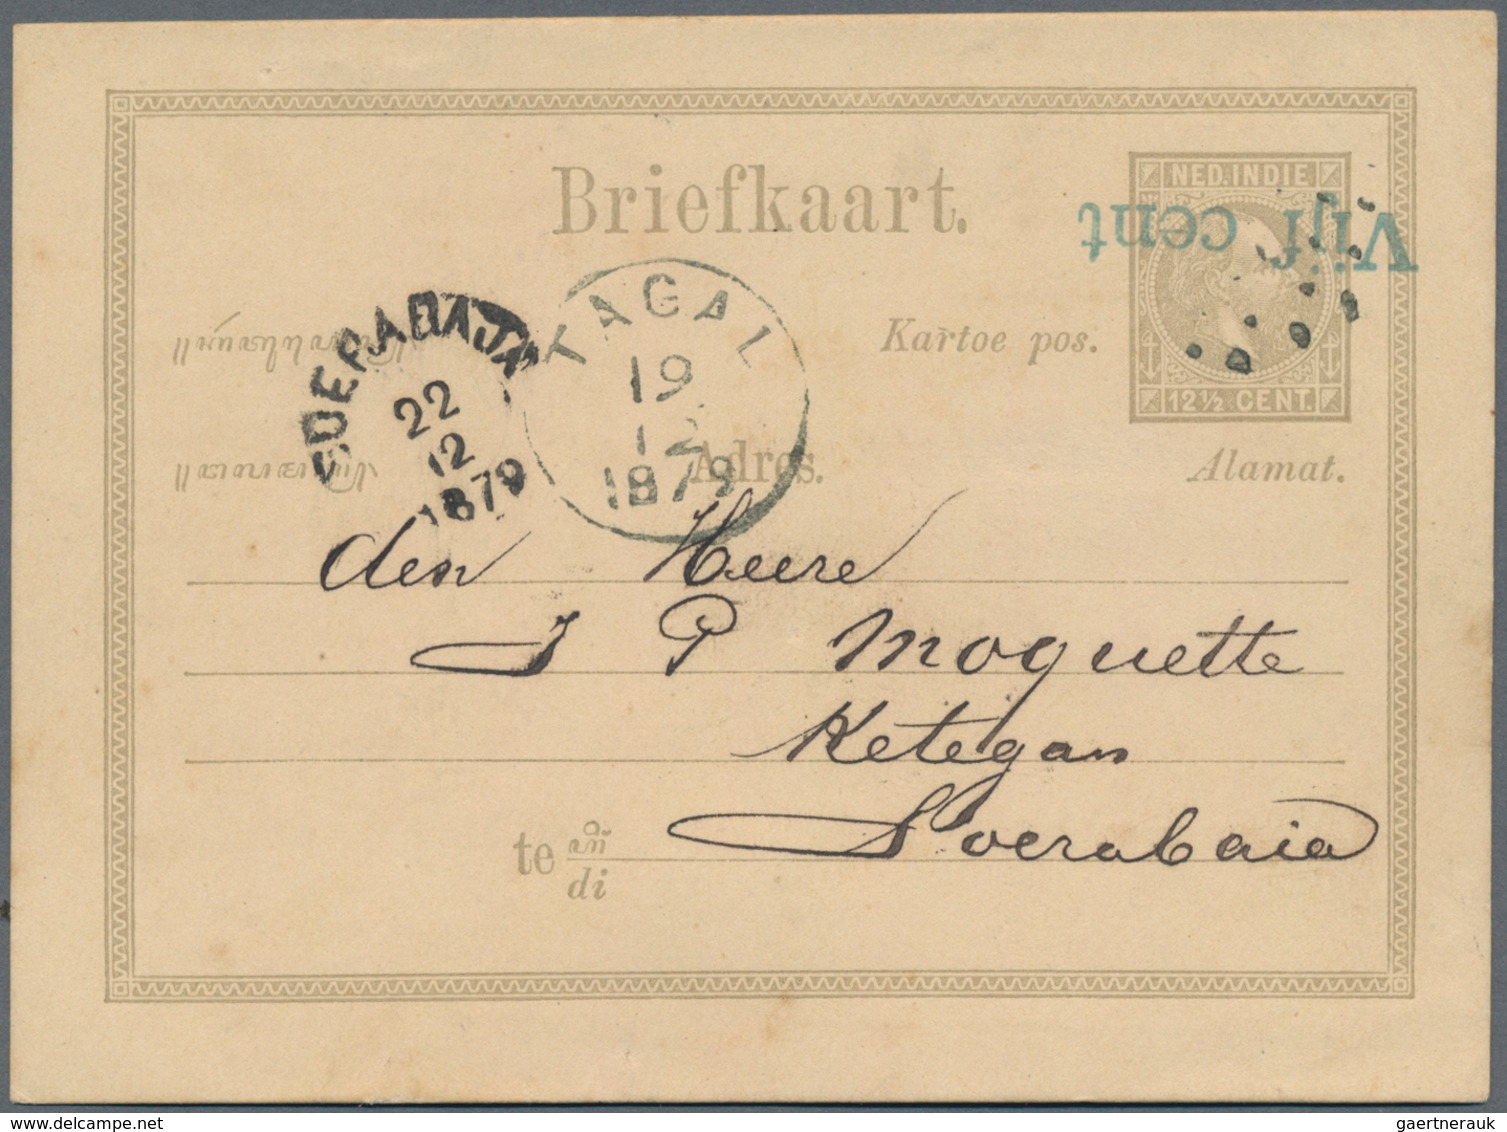 NED.INDIE
Vijf cent
Briefkaart.
12 ½ CENT.
Kartoe pos.
SOERABAJA
22
12
1879
TAGAL
19
12
1879
Adres.
Alamat.
den Heere
J P Moquette
Ketegan
te di Soerabaia
gaertnerauk @ delcampe.net